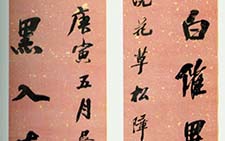 白
花草松障
庚寅五月
黑入